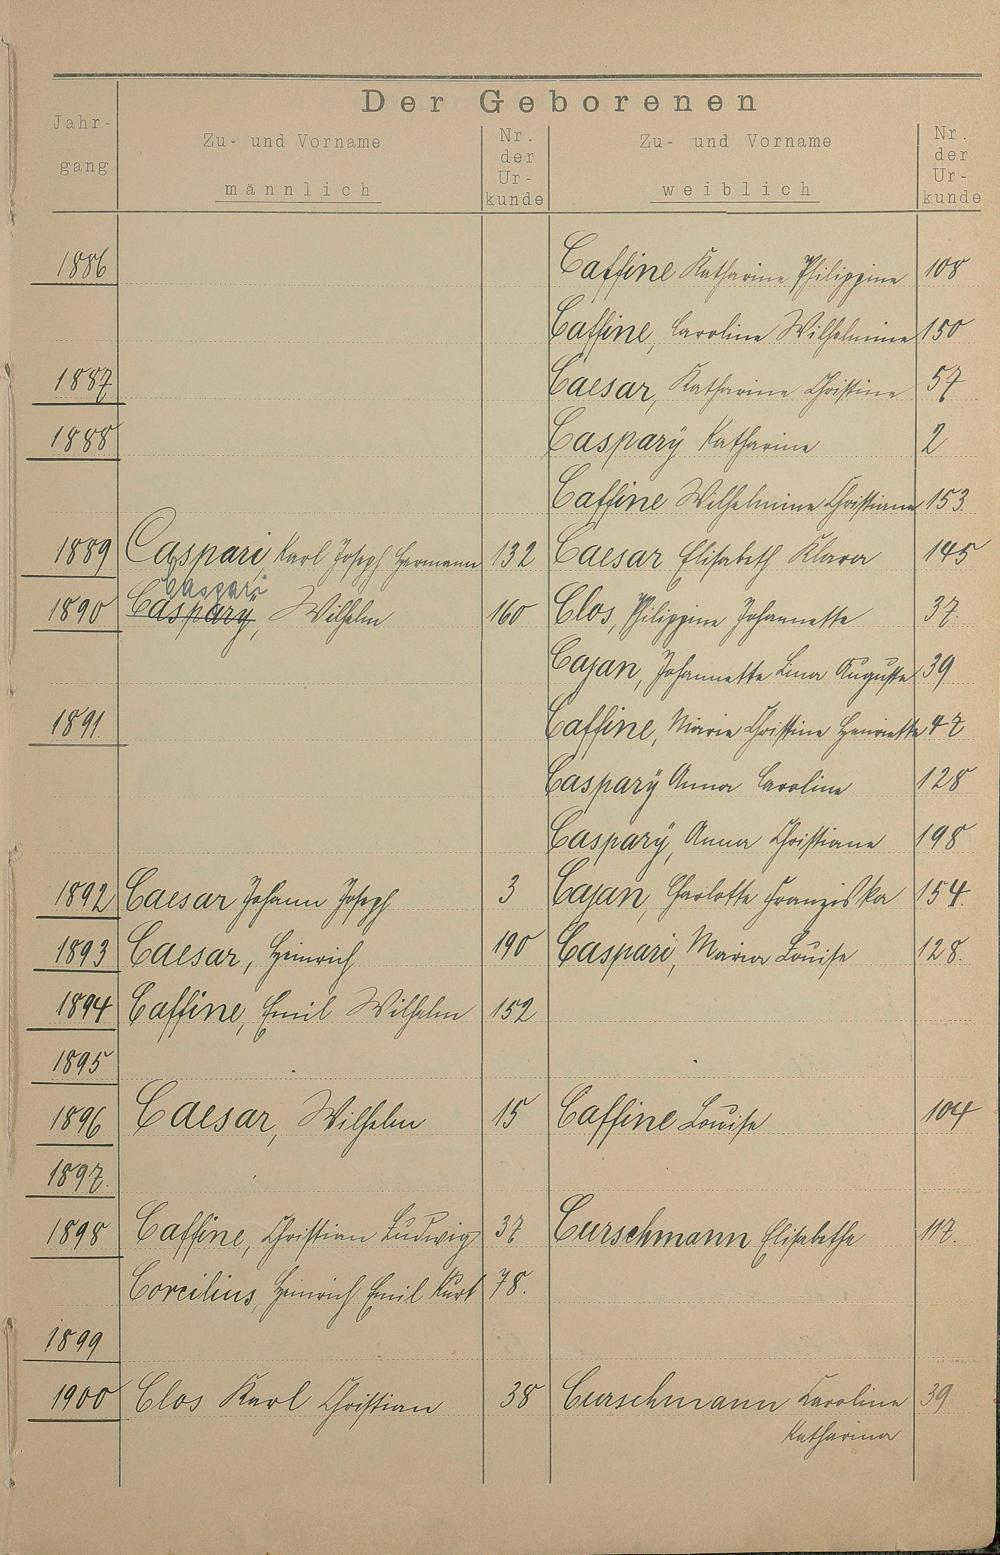 Der Geborenen
Jahr-
gang
Zu- und Vorname
männlich
Nr.
der
Ur-
kunde
Zu- und Vorname
weiblich
Nr.
der
Ur-
kunde
1886 Caffine Katharine Philippine 108
Caffine, Caroline Wilhelmine 150
1887 Caesar, Katharine Christine 57
1888 Caspary Katharine 2
Caffine Wilhelmine Christiane 153
1889 Caspari Karl Joseph Hermann 132 Caesar Elisabeth Klara 145
Caspari
1890 Caspary, Wilhelm 160 Clos, Philippine Johannette 37.
Cajan, Johannette Lina Auguste 39
1891 Caffine, Marie Christine Henriette 47
Caspary Anna Caroline 128
Caspary, Anna Christiane 198
1892 Caesar Johann Joseph 3 Cajan, Charlotte Franziska 154.
1893 Caesar, Heinrich 190 Caspari, Maria Louise 128.
1894 Caffine, Emil Wilhelm 152
1895
1896 Caesar, Wilhelm 15 Caffine Louise 104
1897.
1898 Caffine, Christian Ludwig 37 Curschmann Elisabethe 117.
Corcilius, Heinrich Emil Kurt 78.
1899
1900 Clos Karl Christian 38 Curschmann Karoline 39
Katharina